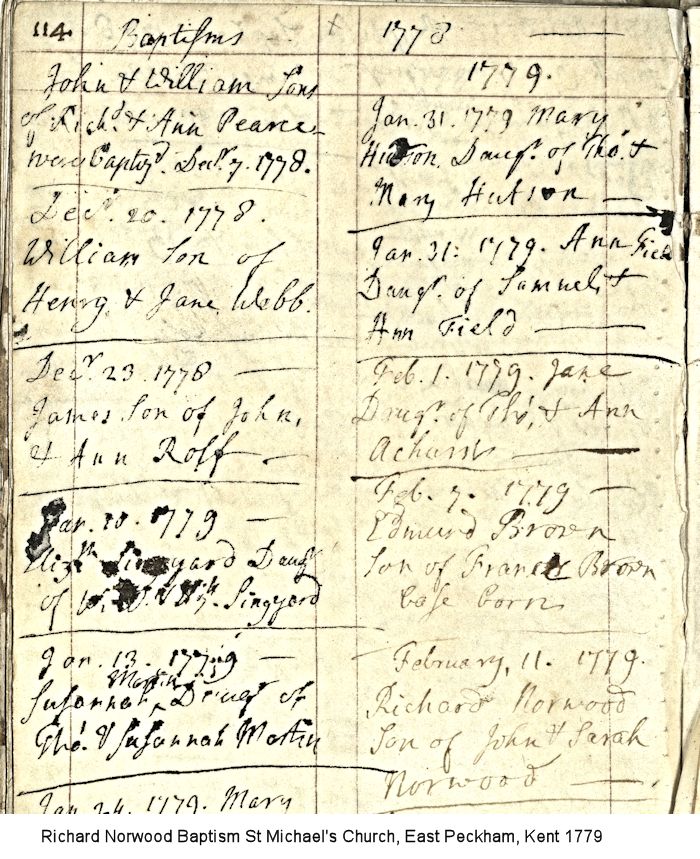 114. Baptisms + 1778
John & William Sons
of Richd. & Ann Pearce
were baptizd. Decr. 7. 1778.
Decr. 20. 1778.
William Son of
Henry & Jane Webb.
Decr. 23. 1778
James Son of John,
& Ann Rolf
Jan. 10. 1779
Elizth. Singyard Daugr.
of & Singyard
Jan. 13. 1779
Martin
Susannah Daugr. of
Tho. & Susannah Martin
Jan. 24. 1779. Mary
1779.
Jan. 31. 1779 Mary
Hutson, Daugr. of Tho. &
Mary Hutson
Jan. 31: 1779. Ann Field
Daugr. of Samuel, &
Ann Field
Feb. 1. 1779. Jane
Daugr. of Tho, & Ann
Feb. 7. 1779
Edmund Brown
Son of Frances Brown
base born
February, 11. 1779.
Richard Norwood
Son of John & Sarah
Norwood
Richard Norwood Baptism St Michael's Church, East Peckham, Kent 1779